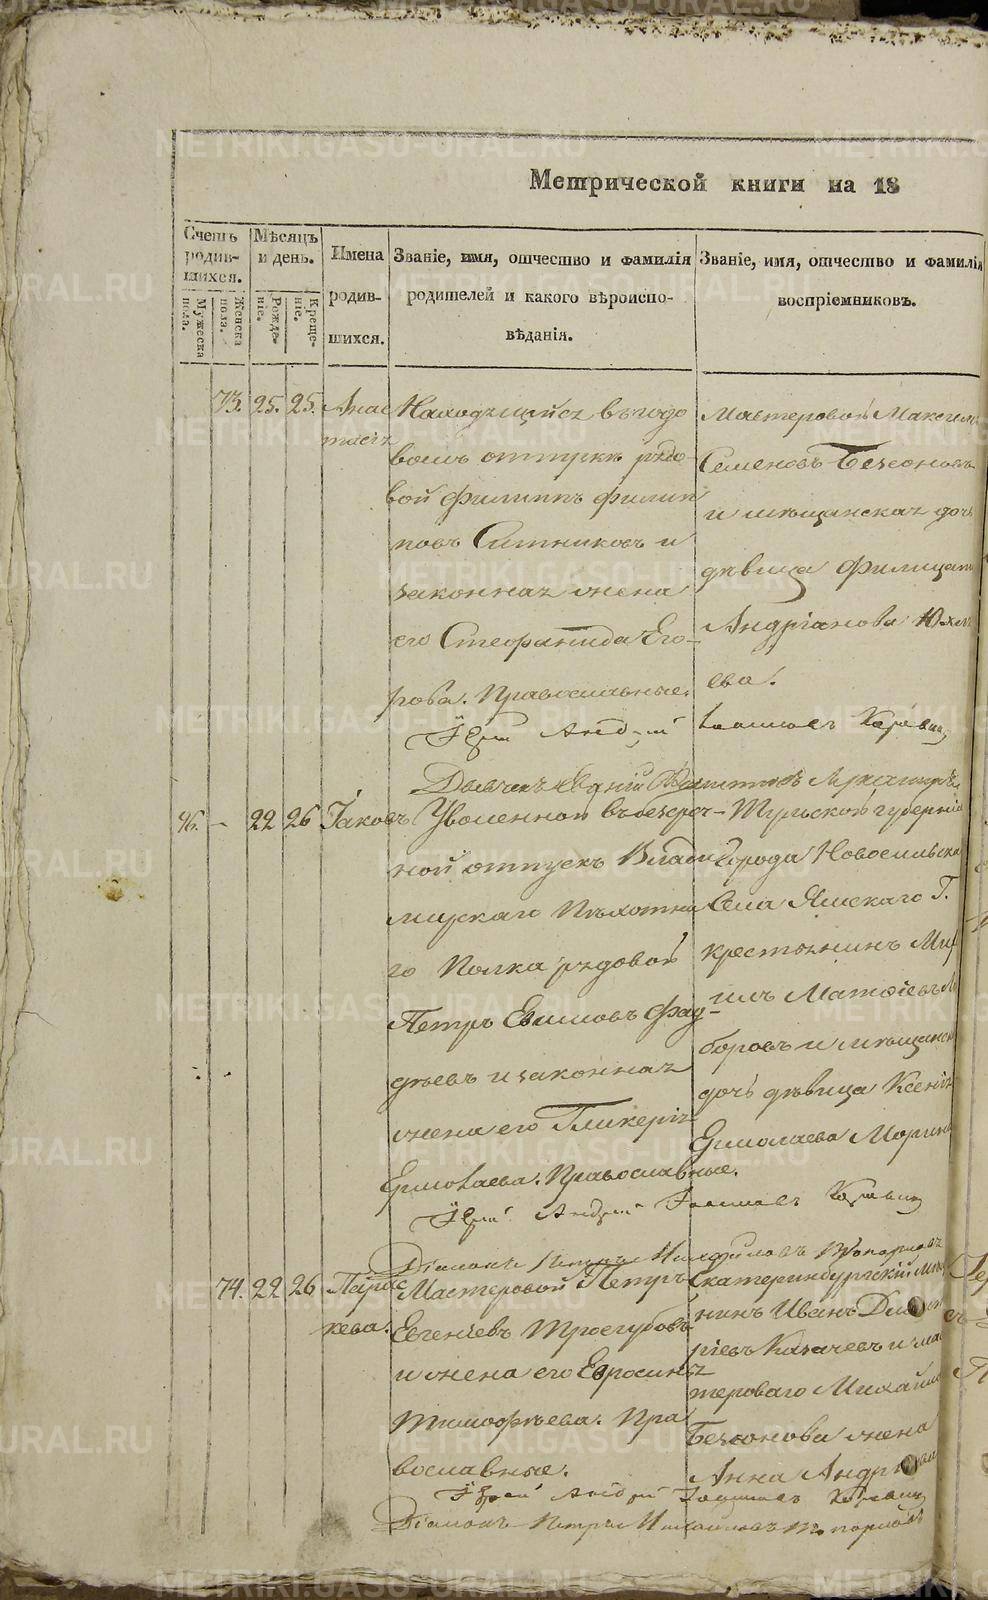 Метрической книги на 18
Счетъ родившихся.
Мужеска пола.
Женска пола.
Мѣсяцъ и день.
Рожденіе.
Крещеніе.
Имена родившихся.
Званіе, имя, отчество и фамилія родителей и какого вѣроисповѣданія.
Званіе, имя, отчество и фамилія воспріемниковъ.
73. 25. 25.
Анас
тасія
Находящійся въ годо
вомъ отпускѣ рядо-
вой Филиппъ Филип
повъ Ситниковъ и
законная жена
его Стефанида Его-
рова. Православные.
Мастеровой Максим
Семеновъ Безсоновъ
и мѣщанская дочь
дѣвица Филицат
Андріанова
ева.
Іерей Андрей
46. - 22 26
Іаковъ
Уволенной въ безсроч-
ной отпускъ Влади
мирскаго Пѣхотна
го Полка рядовой
Петръ Евимовъ Фад-
дѣевъ и законная
жена его Гликерія
Ермолаева. Православные.
Тульской губерніи
Города Новосильска
Села Ямскаго Г.
крестьянинъ Мир
Матөіевъ
боровъ и мѣщанск
дочь дѣвица Ксенія
Ермолаева Морин
Іерей Андрей
Діаконъ Петръ
74. 22 26
Парас
кева.
Мастеровой Петръ
Евгеніевъ Троегубовъ
и жена его Евросинія
Тимофѣева. Пра
вославные.
Екатеринбургскій мѣщ
нинъ Иванъ Дим
ріевъ Казачевъ и мас
тероваго Михайл
Безсонова жена
Анна Андр
Іерей Андрей
Діаконъ Петръ
METRIKI.GASO-URAL.RU